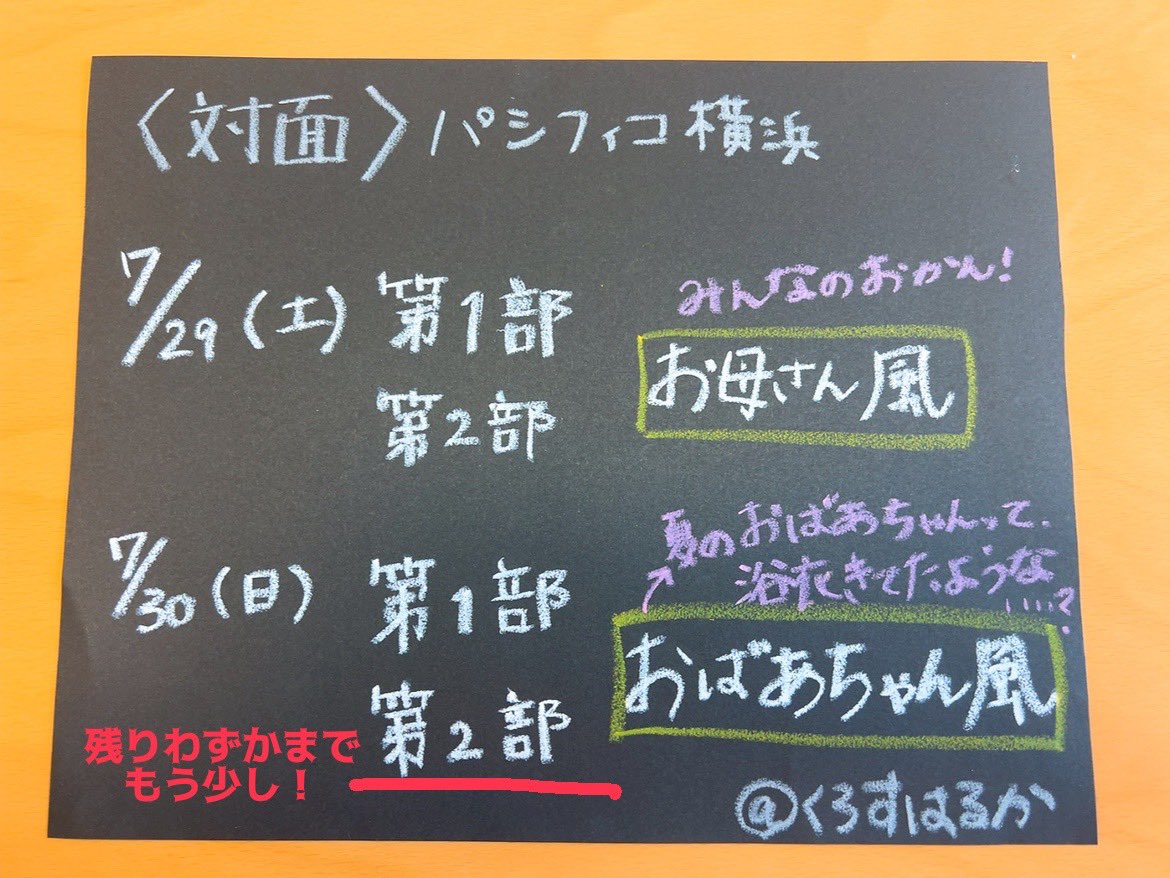 〈対面〉パシフィコ横浜
7/29(土) 第1部
第2部
みんなのおかん!
お母さん風
7/30(日) 第1部
第2部
夏のおばあちゃんって、
浴衣きてたような
....?
おばあちゃん風
残りわずかまで
もう少し！
@くろすはるか